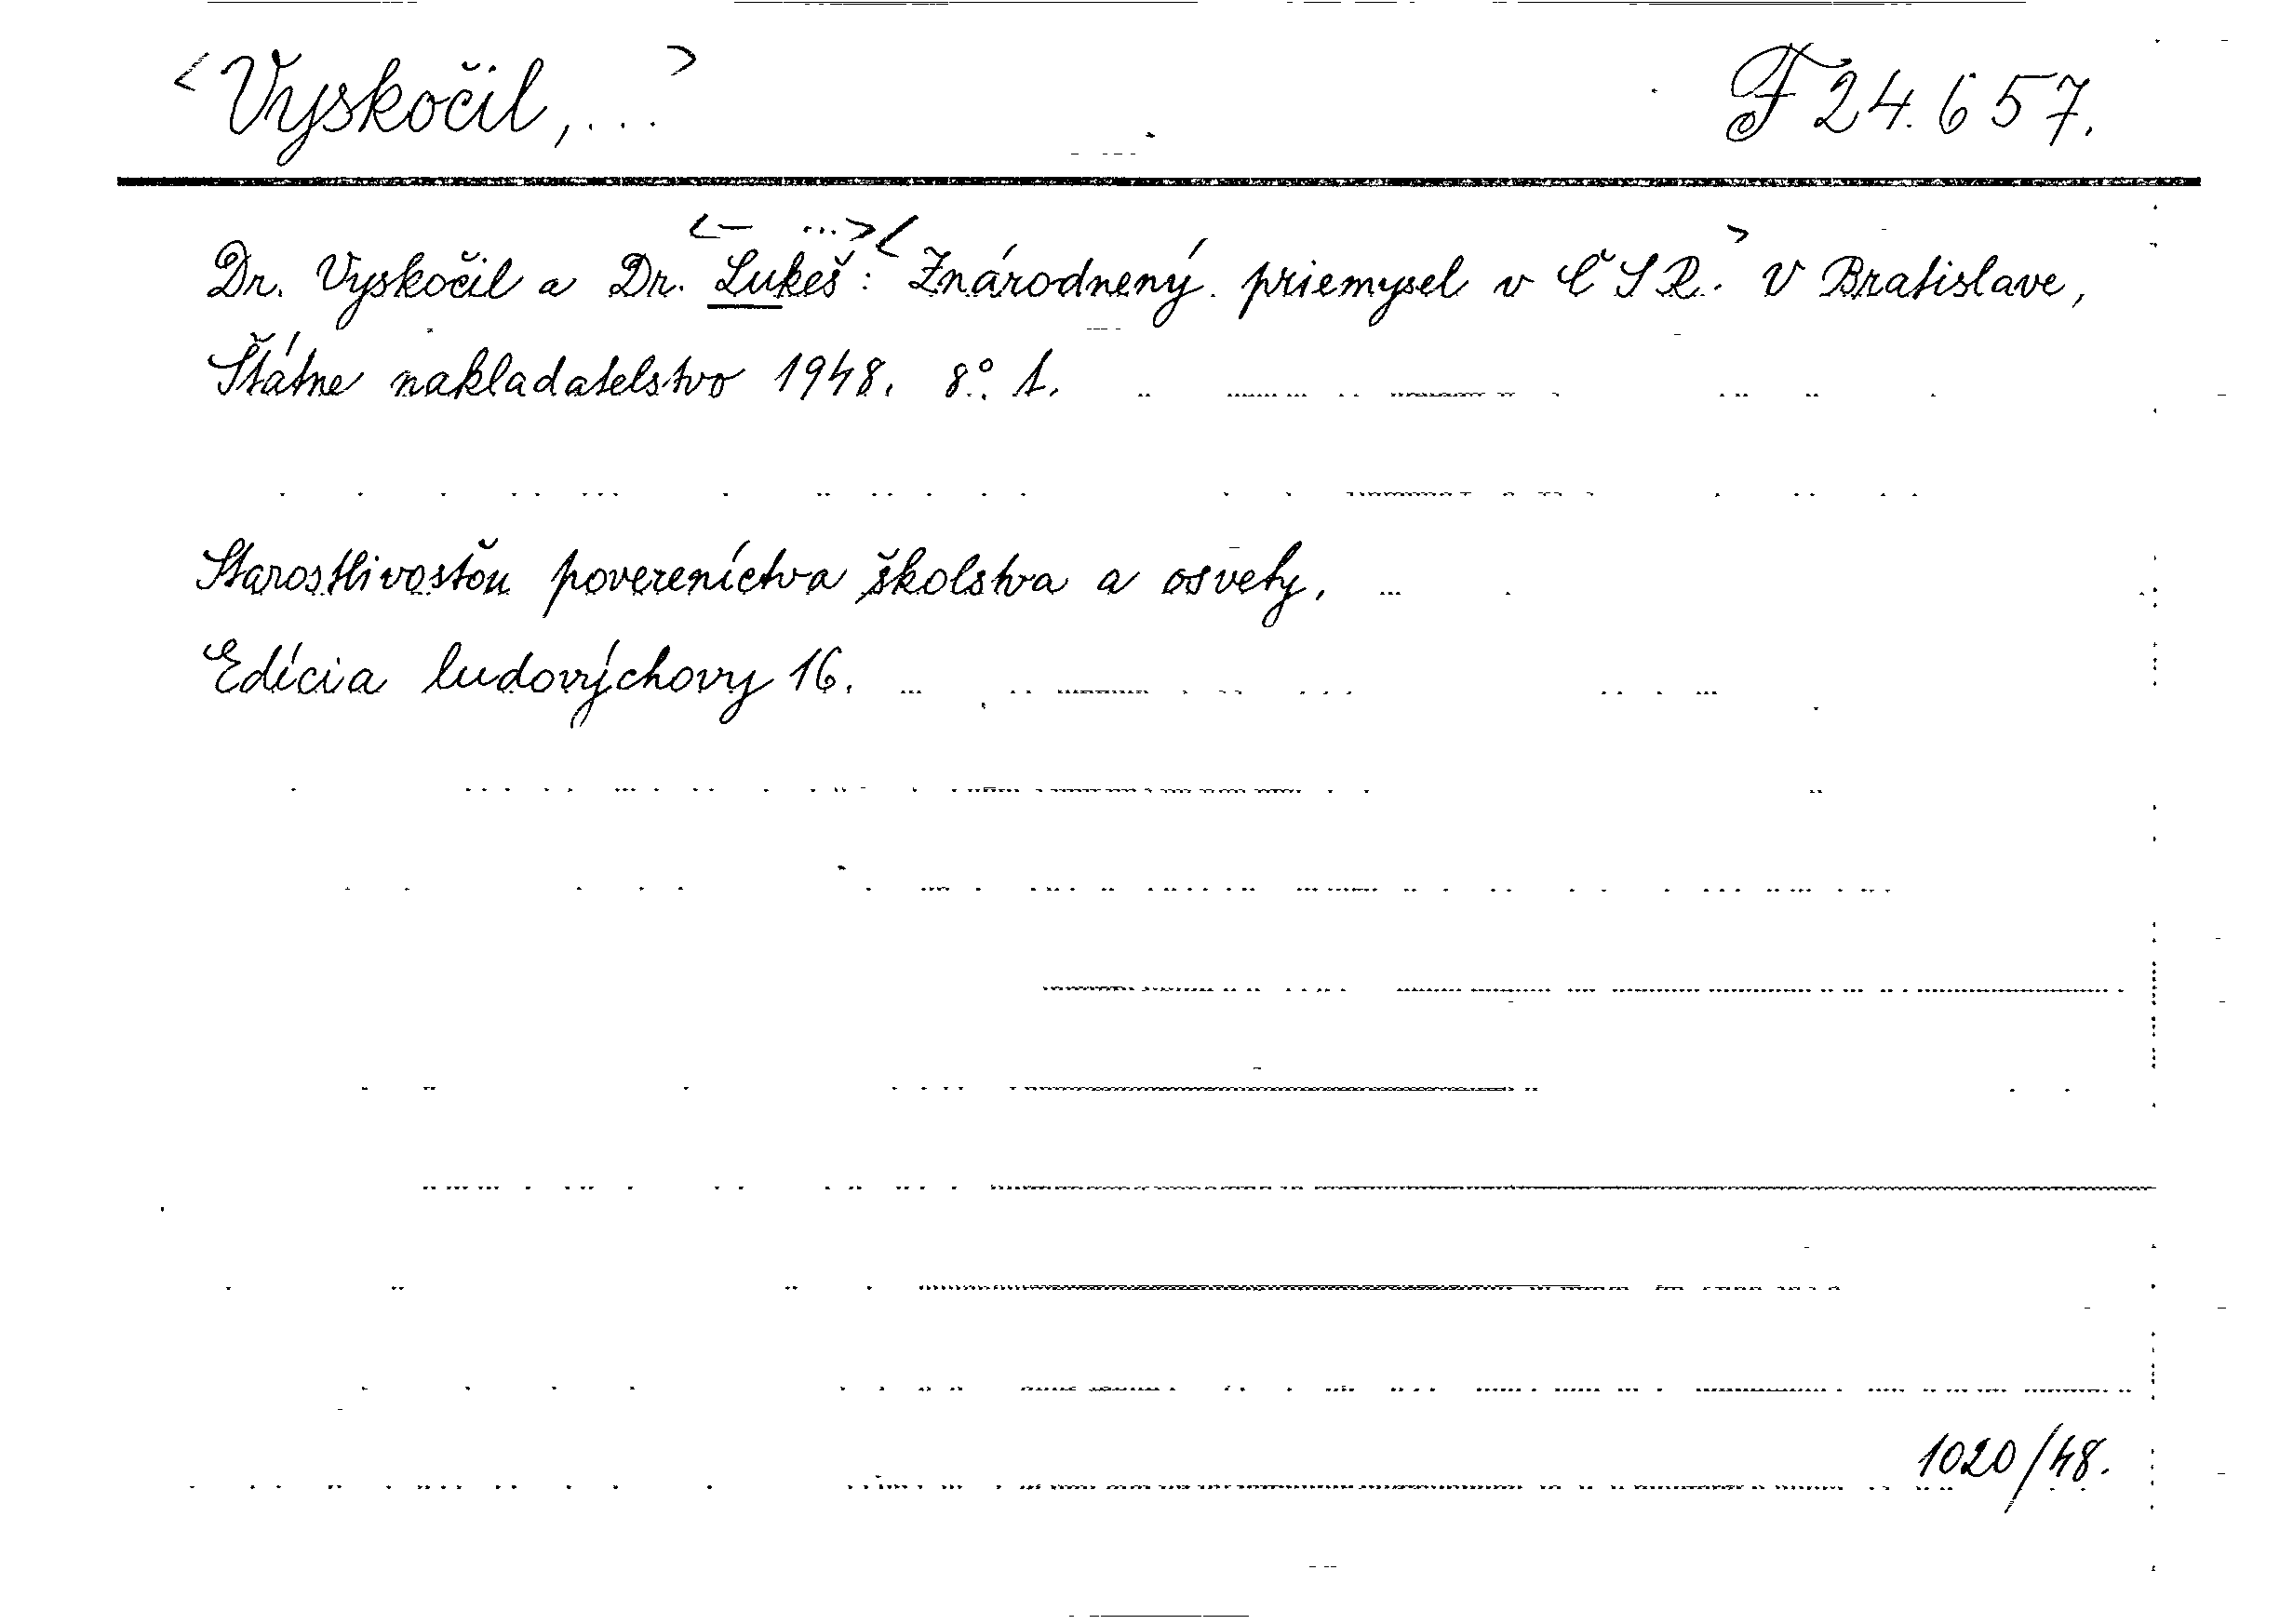 <Vyskočil,...> F 24.657.
<- ...><                >
Dr. Vyskočil a Dr. Lukeš: Znárodnený priemysel v ČSR. V Bratislave,
Štátne nakladatelstvo 1948. 8°. 1.
Starostlivosťou povereníctva školstva a osvety.
Edícia ludovýchovy 16.
1020/48.